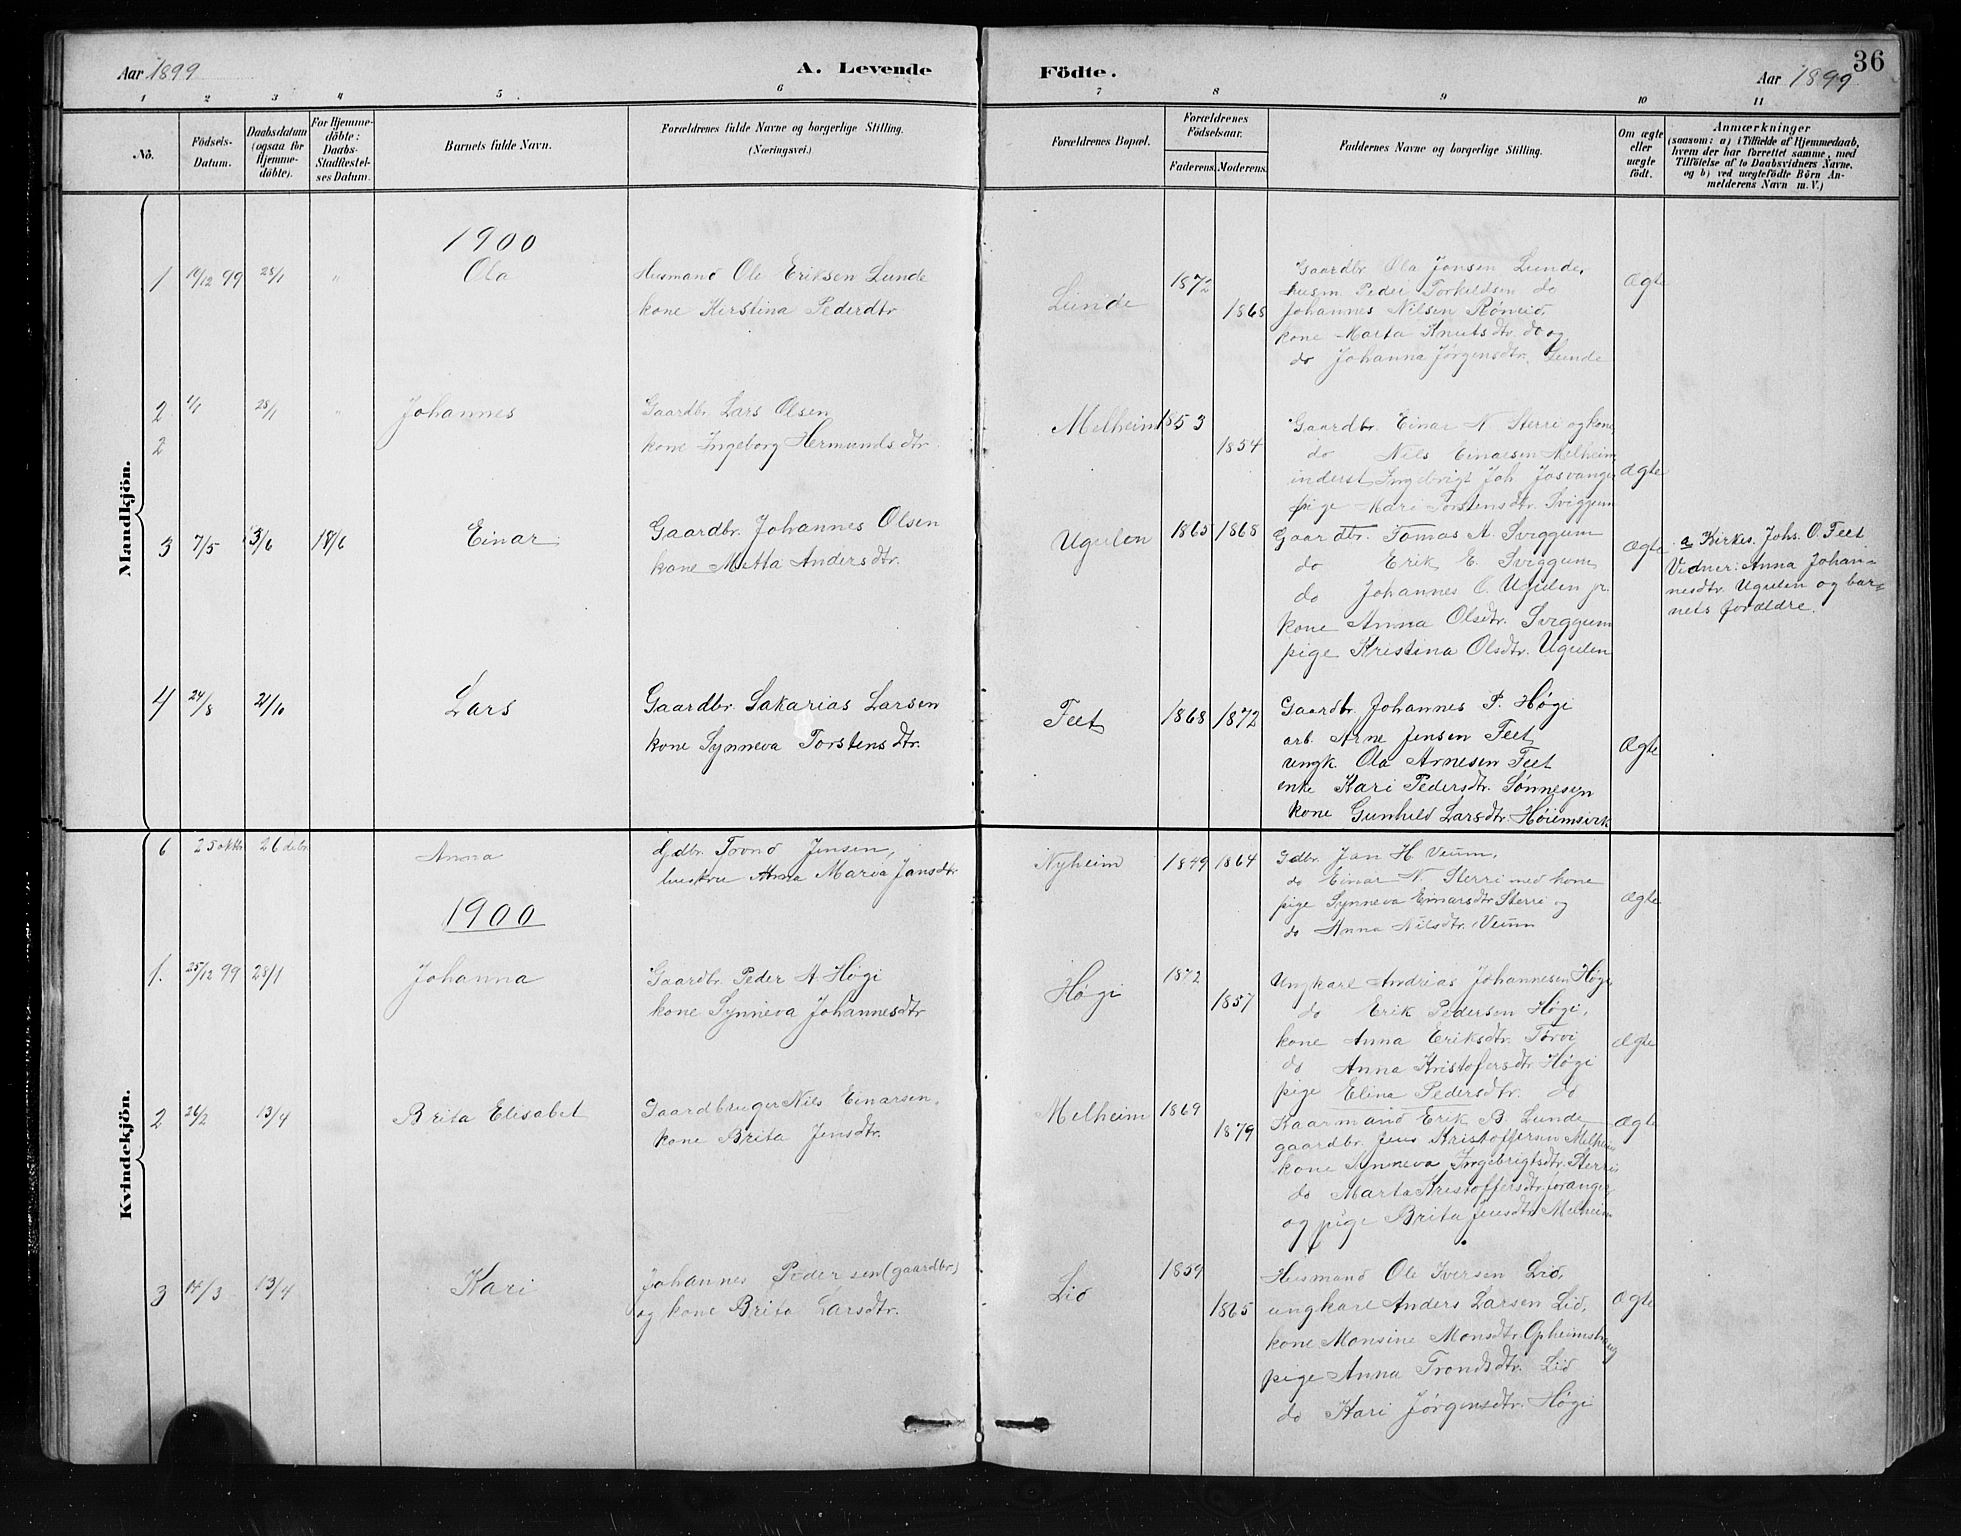 Aar 1899
A. Levende
Födte.
Aar 1899
36
1 2 3 4 5 6 7 8 9 10 11
No.
Födsels-
Datum.
Daabsdatum
(ogsaa for
Hjemme-
döbte).
For Hjemme-
döbte:
Daabs-
Stadfæstel-
ses Datum.
Barnets fulde Navn.
Forældrenes fulde Navne og borgerlige Stilling.
(Næringsvei.)
Forældrenes Bopæl.
Forældrenes
Födselsaar.
Faderens. Moderens.
Faddernes Navne og borgerlige Stilling.
Om ægte
eller
uægte
födt.
Anmærkninger
(saasom: a) i Tilfælde af Hjemmedaab,
hvem der har forrettet samme, med
Tilföielse af to Daabsvidners Navne,
og b) ved uægtefödte Börn An-
melderens Navn m. V.)
Mandkjön.
1900
1 28/1 " Ola
Husmand Ole Eriksen Lunde
kone Kerstina Pederdtr
Lunde 1872 1868
Gaardbr. Ola Jonsen Lunde,
husm. Peder Torkildsen do
Johannes Nilsen Røneid,
kone Marta Knutsdtr. do og
do Johanna Jørgensdtr. Lunde
Ægte
2 1/1 28/1 " Johannes
2
Gaardbr. Lars Olsen
kone Ingeborg Hermundsdtr.
Melheim 1853 1854
Gaardbr. Einar N. Sterri og kone
do Nils Einarsen Melheim
inderst Ingebrigt Joh
pige Mari Torstensdtr. Sviggum
ægte
3 7/5 3/6 18/6 Einar
Gaardbr. Johannes Olsen
kone Metta Andersdtr.
Ugulen 1865 1868
Gaardbr. Tomas A. Sviggum
do Erik E. Sviggum
do Johannes O. Ugulen jr.
kone Anna Olsdtr. Sviggum
pige Kristina Olsdtr. Ugulen
Ægte
a Kirkes. Johs. O. Feet
Vidner: Anna Johan-
nesdtr. Ugulen og bar-
nets forældre.
4 24/8 21/10 Lars
Gaardbr. Sakarias Larsen
kone Synneva Torstensdtr.
Feet 1868 1872
Gaardbr. Johannes P. Høgi
arb. Arne Jensen Feet
ungk. Ola Arnesen Feet
enke Kari Pedersdtr. Sønnesyn
kone Gunhild Larsdtr. Høiemsvik
Ægte
Kvindekjön.
6 25 oktb 26 debr Anna
Gdbr. Trond Jensen,
hustru Anna Maria Jansdtr
Nyheim 1849 1864
Gdbr. Jan H. Veum,
do Einar N. Sterri med kone
pige Synneva Einarsdtr Sterri og
do Anna Nilsdtr. Veum
Ægte
1900
1. 25/12 99 28/1 Johanna
Gaardbr. Peder A. Høgi
kone Synneva Johannesdtr
Høgi 1872 1857
Ungkarl Andrias Johannesen Høgi
do Erik Pedersen Høgi,
kone Anna Eriksdtr. Törvi
do Anna Kristofersdtr Høgi
pige Elina Pedersdtr. do
Ægte
2 26/2 13/4 Brita Elisabet
Gaardbruger Nils Einarsen,
kone Brita Jensdtr.
Melheim 1869 1879
Kaarmand Erik B. Lunde
gaardbr. Jens Kristoffersen Melheim
kone Synneva Ingebrigtsdtr. Sterri
do Marta Kristoffersdtr.
og pige Brita Jensdtr. Melheim
Ægte
3 18/3 13/4 Kari
Johannes Pedersen (gaardbr)
og kone Brita Larsdtr.
Lid 1859 1865
Husmand Ole Iversen Lid,
ungkarl Anders Larsen Lid,
kone Monsine Monsdtr.
pige Anna Trondsdtr. Lid
do Kari Jørgensdtr. Høgi
Ægte